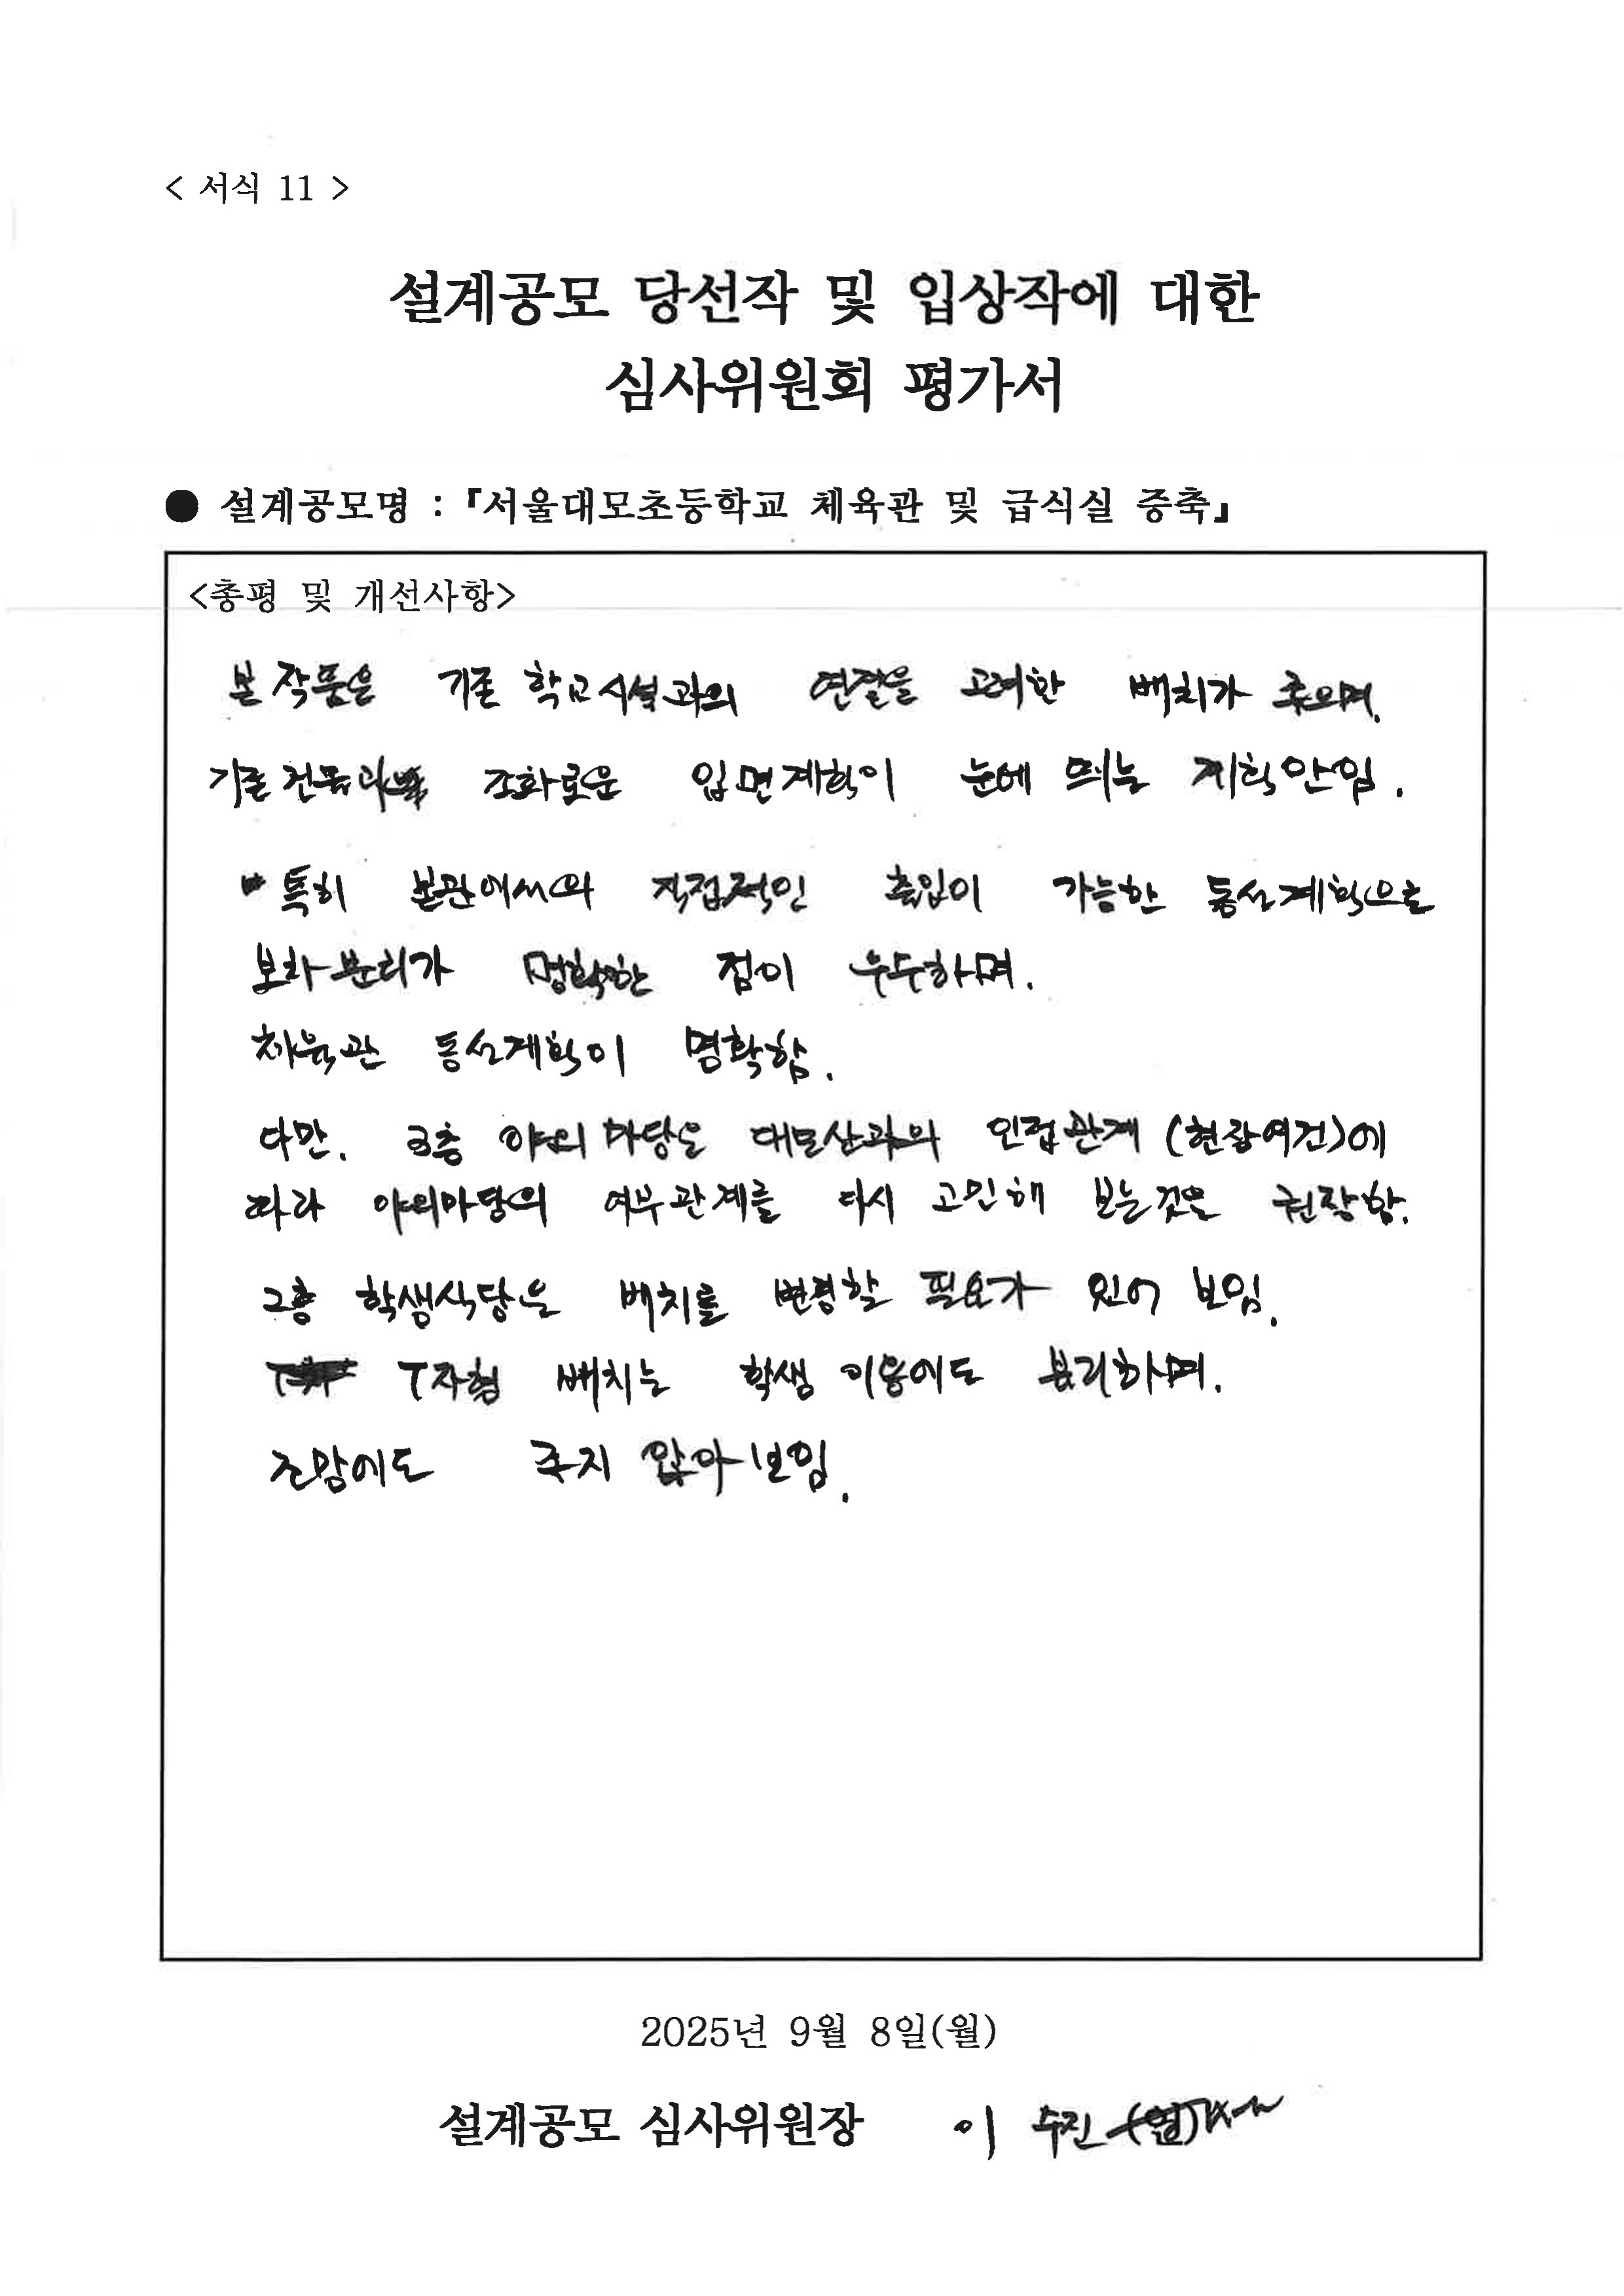 < 서식 11 >
설계공모 당선작 및 입상작에 대한
심사위원회 평가서
● 설계공모명 : 『서울대모초등학교 체육관 및 급식실 증축』
<총평 및 개선사항>
본 작품은 기존 학교시설과의 연결을 고려한 배치가 좋으며,
기존 건물과 조화로운 입면계획이 눈에 띄는 계획안임.
특히 본관에서와 직접적인 출입이 가능한 동선계획으로
보차분리가 명확한 점이 우수하며.
체육관 동선계획이 명확함.
다만. 3층 야외마당은 대모산과의 인접관계 (현장여건)에
따라 야외마당의 여부관계를 다시 고민해 보는것은 권장함.
2층 학생식당은 배치를 변경할 필요가 있어 보임.
T자형 배치는 학생 이용에도 불리하며.
조망에도 좋지 않아 보임.
2025년 9월 8일(월)
설계공모 심사위원장 이 수진 (인)